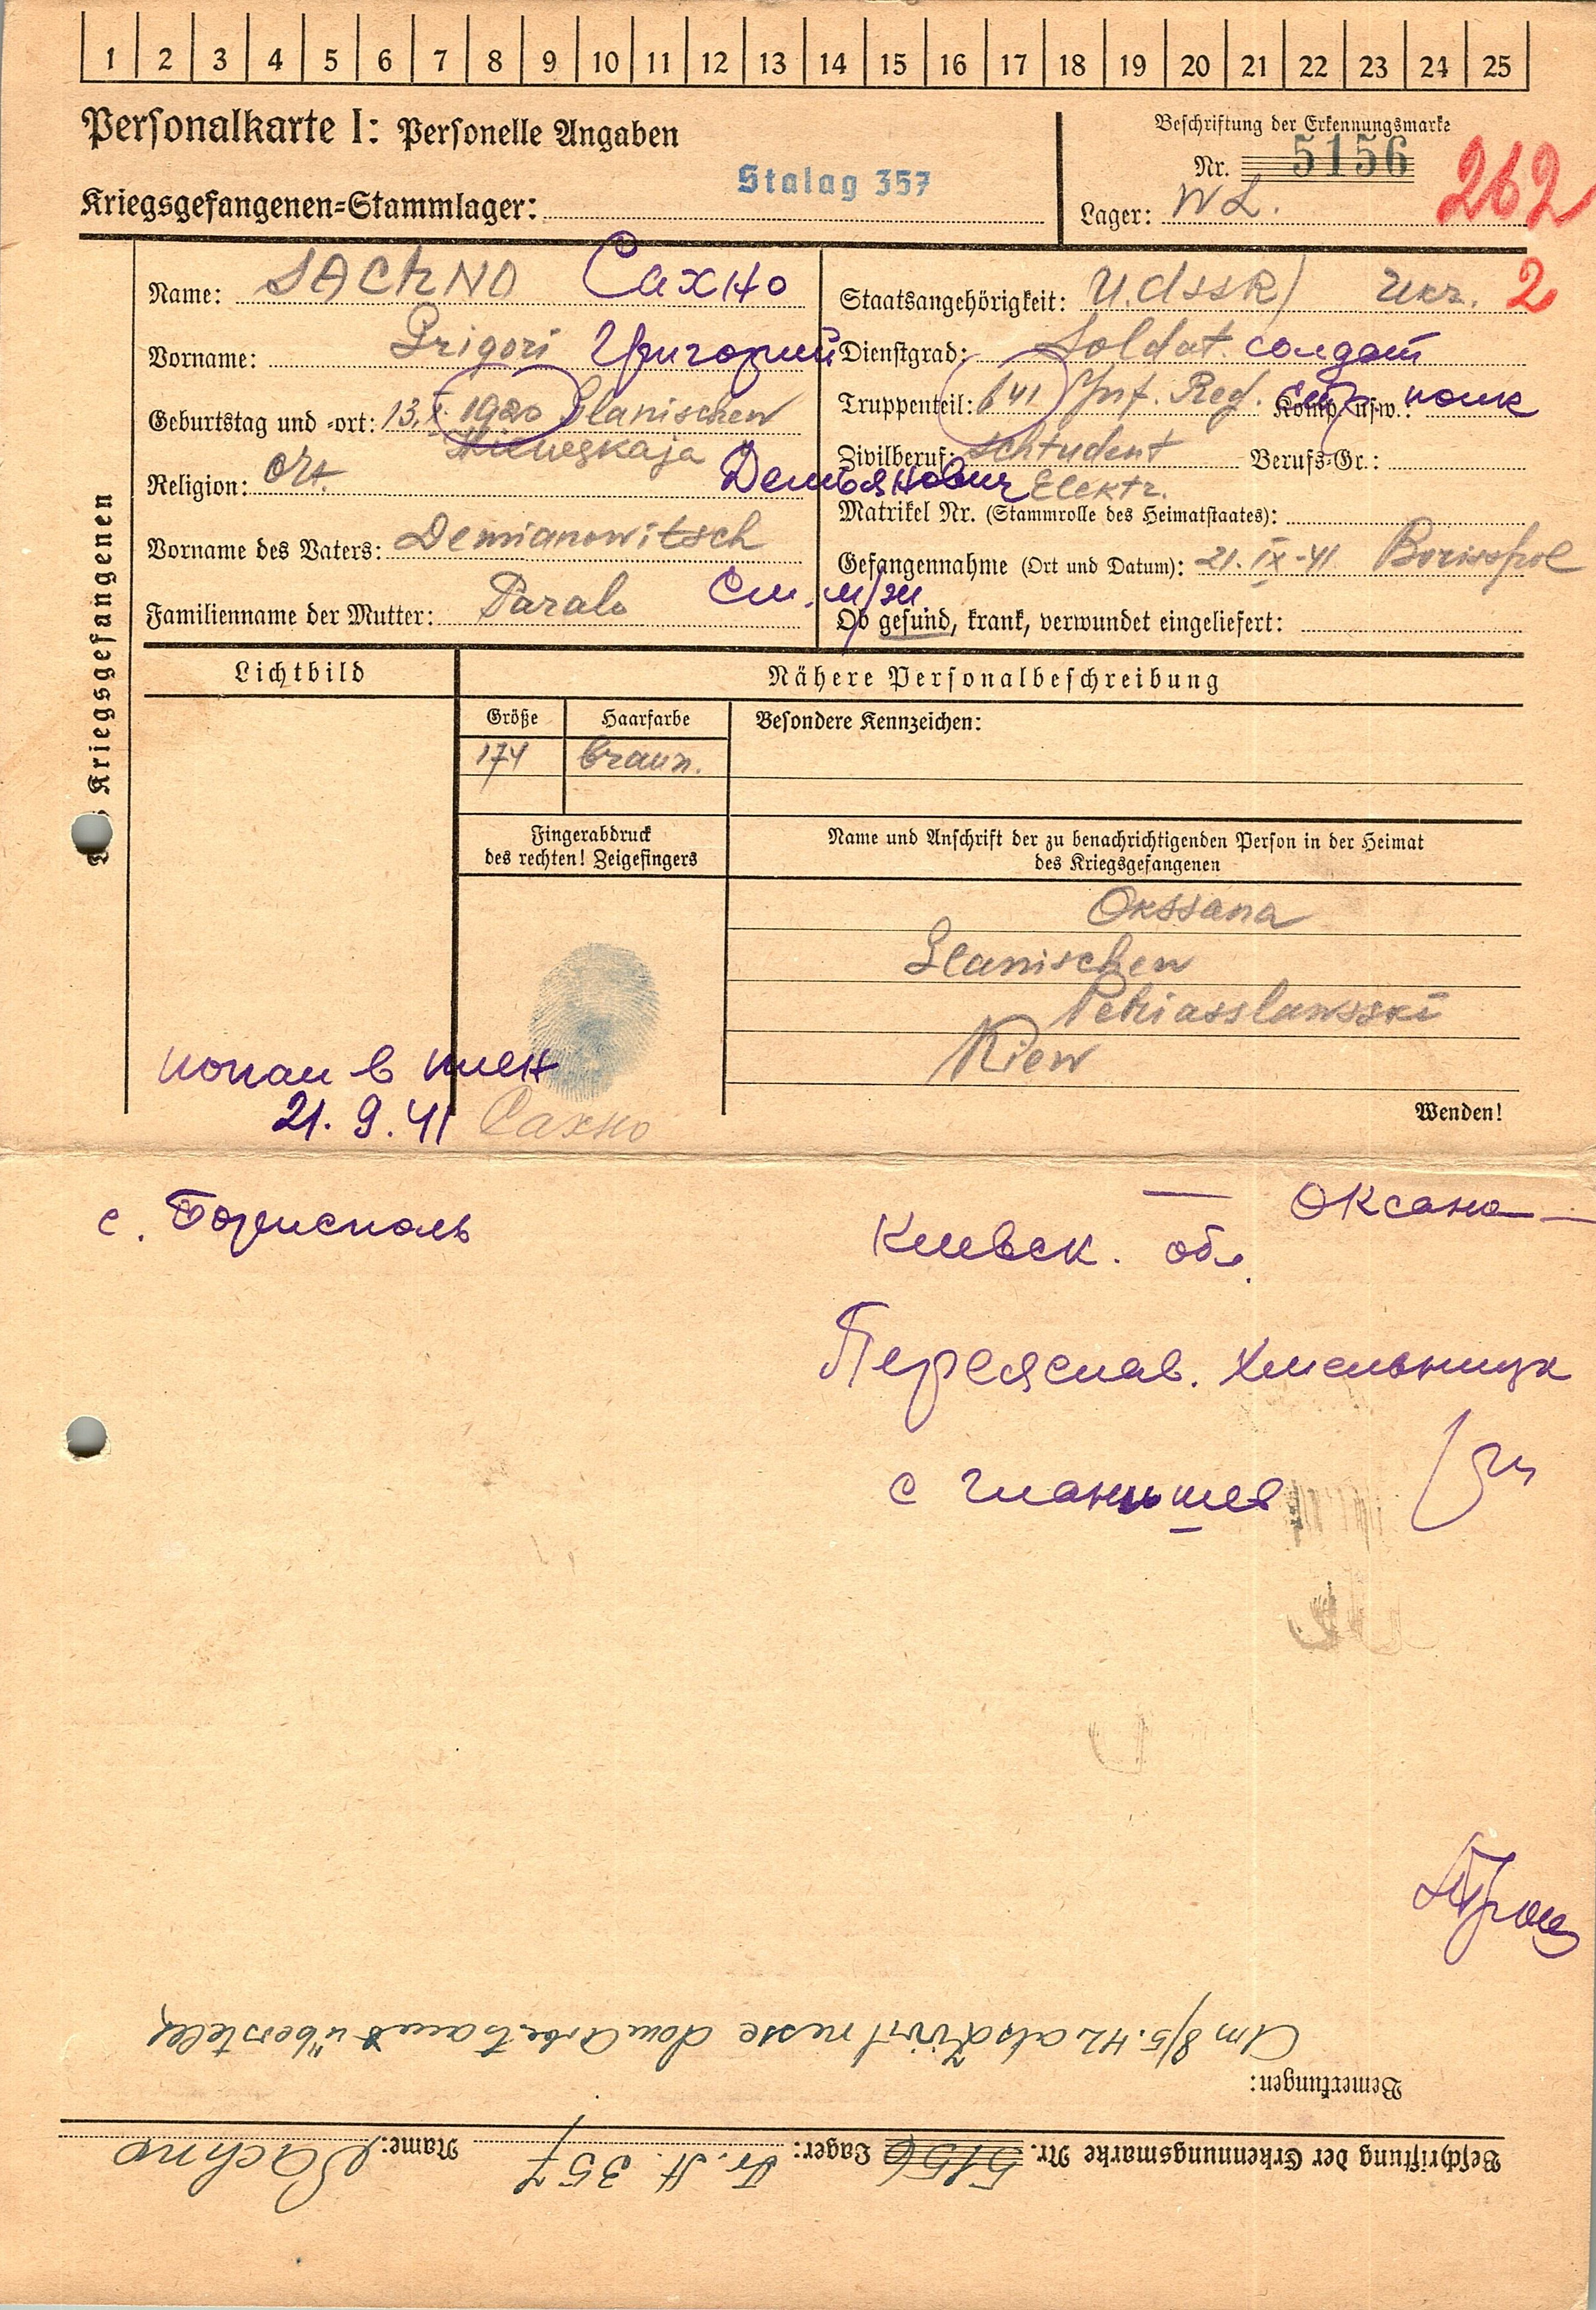 1 2 3 4 5 6 7 8 9 10 11 12 13 14 15 16 17 18 19 20 21 22 23 24 25
Personalkarte I: Personelle Angaben
Beschriftung der Erkennungsmarke
Nr. 5156
262
Kriegsgefangenen-Stammlager: Stalag 357
Lager: WL.
Des Kriegsgefangenen
Name: SAChNO Сахно
Vorname: Grigori Григорий
Geburtstag und -ort: 13. 1920 Glanischew
Kiewskaja
Religion: ort.
Демьянович
Vorname des Vaters: Demianowitsch
Familienname der Mutter: Paralo
Staatsangehörigkeit: U.d.SSR/ Ukr. 2
Dienstgrad: Soldat. солдат
Truppenteil: 641 Inf. Reg. Komp. usw.: стр. полк
Zivilberuf: Schtudent Berufs-Gr.:
Elektr.
Matrikel Nr. (Stammrolle des Heimatstaates):
Gefangennahme (Ort und Datum): 21. IX-41. Borispol
Ob gesund, krank, verwundet eingeliefert:
Lichtbild
Nähere Personalbeschreibung
Größe
Haarfarbe
Besondere Kennzeichen:
174
braun.
Fingerabdruck
des rechten! Zeigefingers
Name und Anschrift der zu benachrichtigenden Person in der Heimat
des Kriegsgefangenen
Okssana
Glanischew
Periasslawsski
Kiew
попал в плен
21. 9. 41
Сахно
Wenden!
с. Борисполь
— Оксана —
Киевск. обл.
Переяслав. Хмельницк
с Гланышев
Bemerkungen:
Am 8/5.42 als Zivilrusse dem Arbeitsamt überstellt
Beschriftung der Erkennungsmarke Nr. 5156 Lager: Fr. St. 357 Name: Sachno